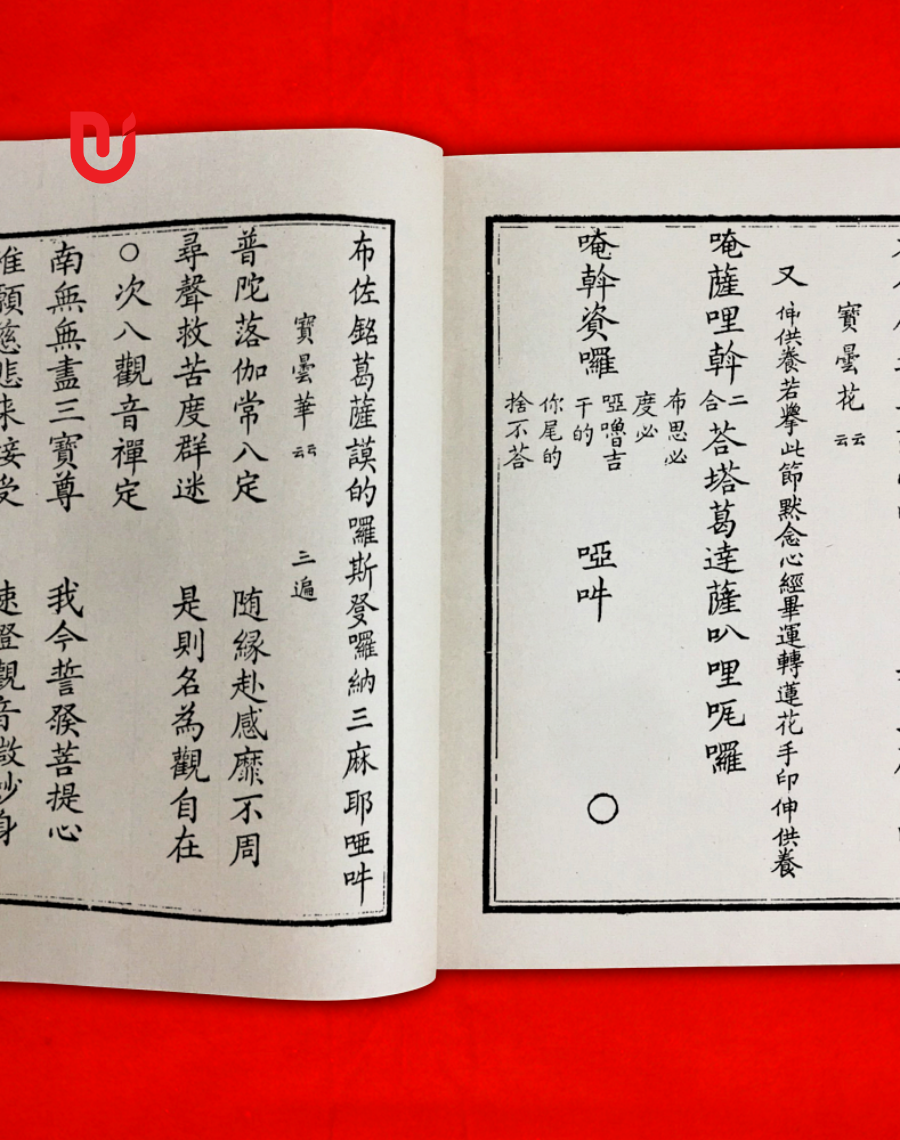 寶曇花 云云
又 伸供養若擧此節默念心經畢運轉蓮花手印伸供養
唵薩哩斡二合荅塔葛達薩叭哩呢囉
唵斡資囉 布思必 度必 啞嚕吉 干的 你尾的 捨不荅 啞吽 ○
布佐銘葛薩謨的囉斯登囉納三麻耶啞吽
寶曇華 云云 三遍
普陀落伽常八定 随縁赴感靡不周
尋聲救苦度群迷 是則名為觀自在
○次八觀音禪定
南無無盡三寶尊 我今誓發菩提心
惟願慈悲来接受 速證觀音微妙身